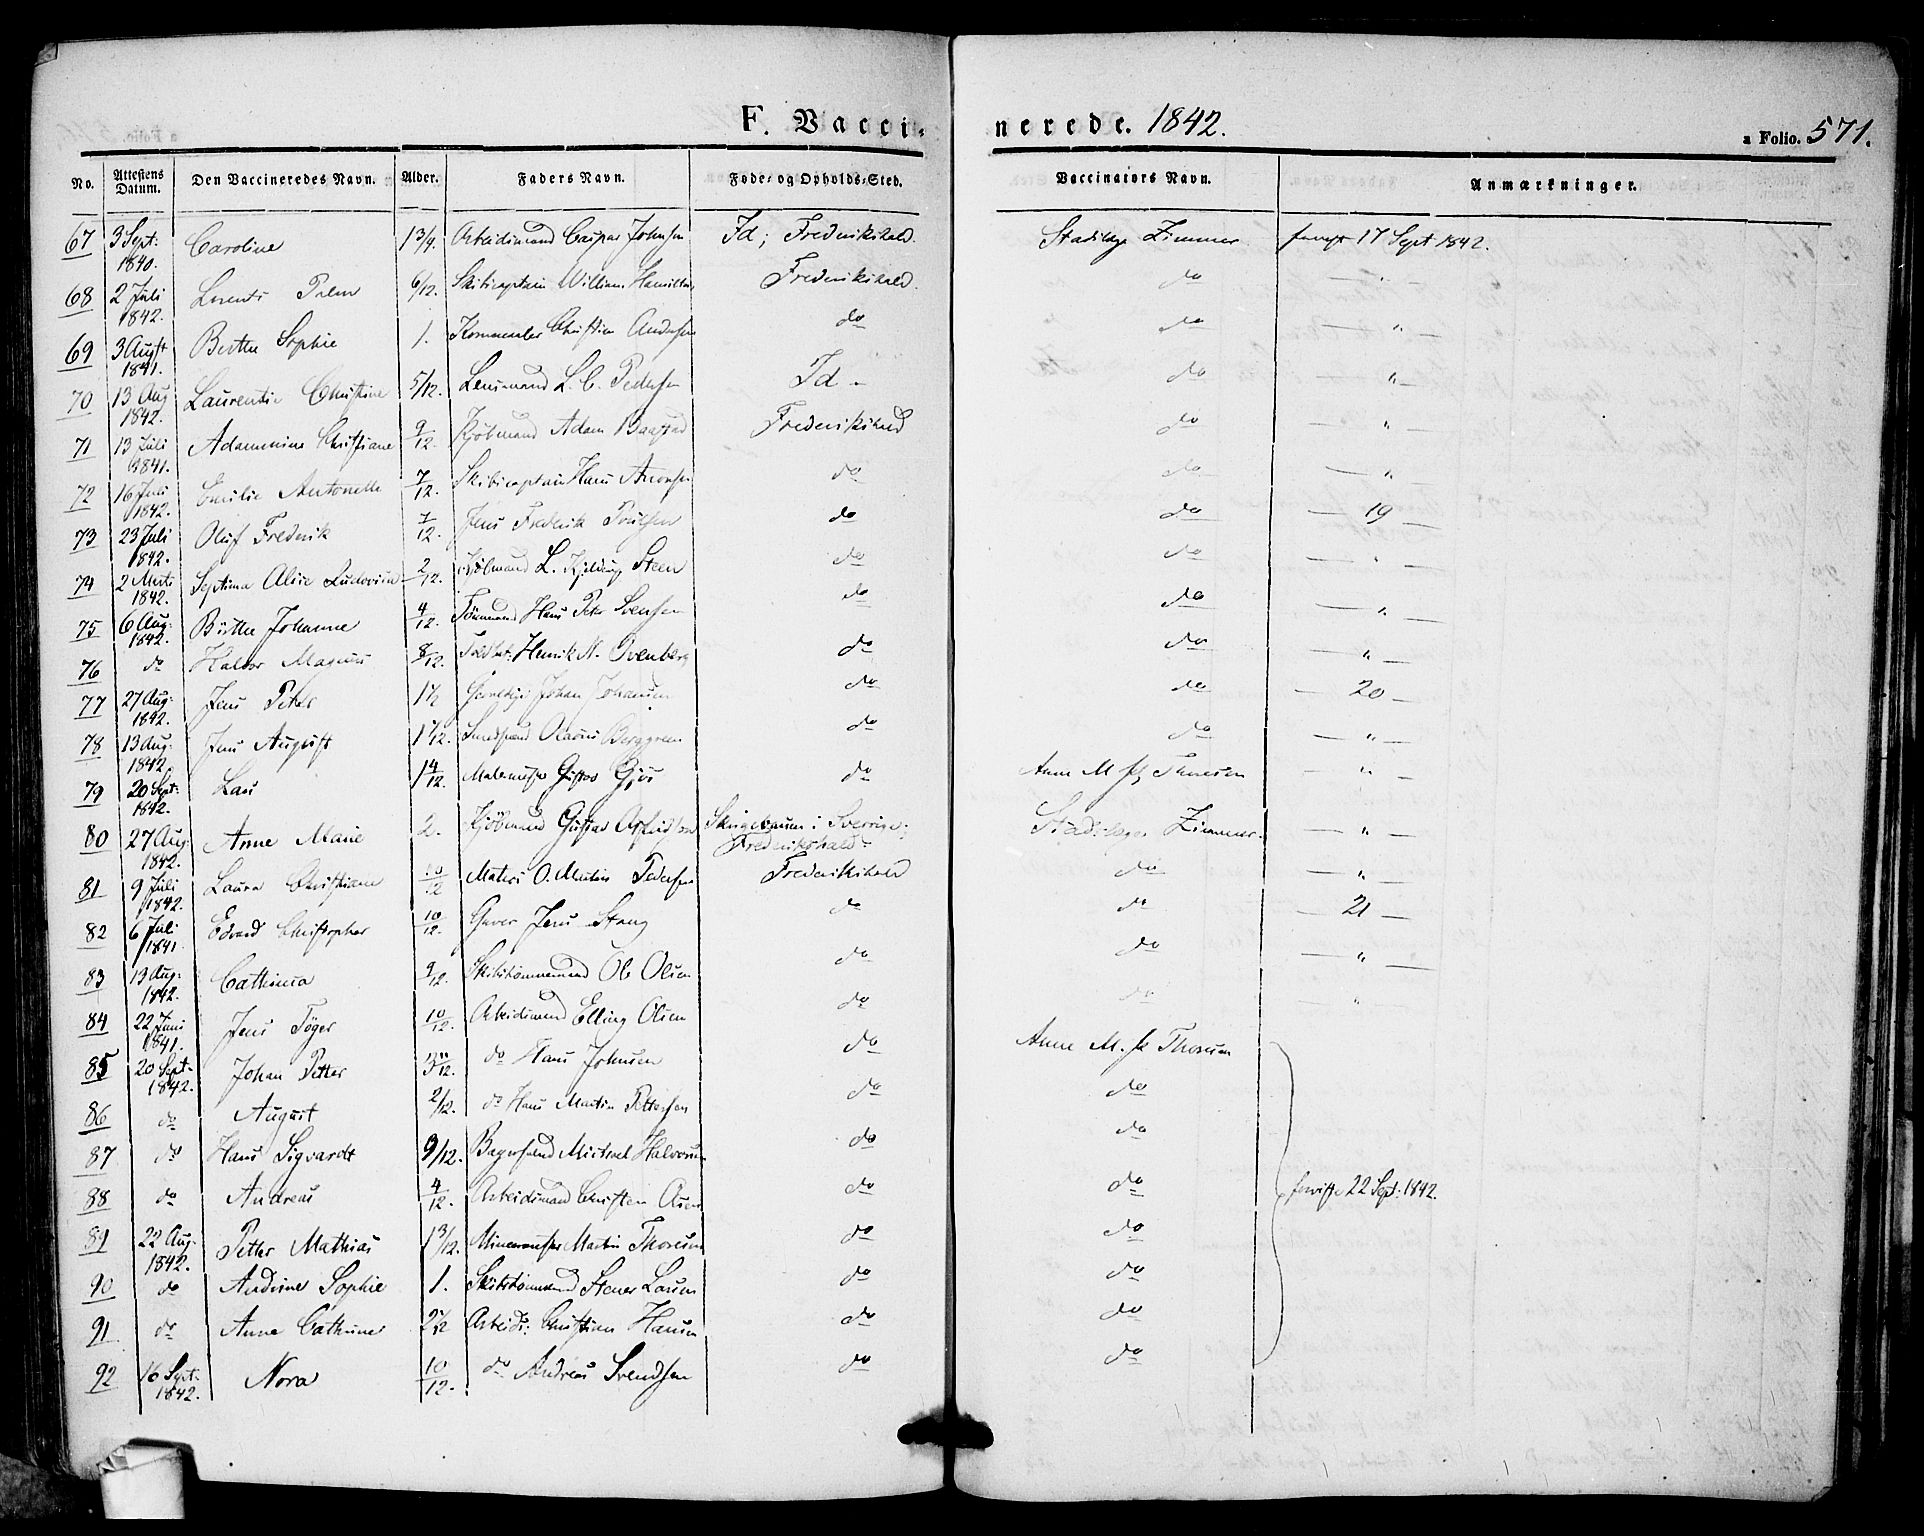 F. Vacci-
nerede. 1842.
a Folio. 571.
No. Attestens Datum. Den Vaccineredes Navn. Alder. Faders Navn. Føde- og Opholds-Sted. Vaccinators Navn. Anmærkninger.
67 3 Sept: 1840. Caroline 1 3/4 Arbeidsmand Caspar Johnsen Id; Frederikshald. Zimmer 17 Sept 1842.
68 2 Juli 1842. Lorents 6/12. Skibscaptain William Frederikshald. do — " —
69 3 Augst 1841. Berthe Sophie 1. Christian Andersen do do — " —
70 13 Aug 1842. Laurentse Christine 5/12. Lensmand L. C. Pedersen Id - do — " —
71 13 Juli 1841. Adammine Christiane 9/12. Kjøbmand Adam Frederikshald do — " —
72 16 Juli 1842. Emilie Antonette 7/12. Skibscaptain Hans do do — " —
73 23 Juli 1842. Oluf Frederik 7/12. Jens Frederik Poulsen do do — 19 —
74 2 1842. Septima Ludovica 2/12. Kjøbmand L. Steen do do — " —
75 6 Aug: 1842. Birthe Johanne 4/12. Tømmermand Hans Peter Svensen do do — " —
76 do Halvor Magnus 8/12. Henrik N. do do — " —
77 27 Aug: 1842. Jens Peter 1 1/2 Johan Johansen do do — 20 —
78 13 Aug: 1842. Jens August Olaus Berggreen do do — " —
79 20 Sept: 1842. Lars 1 4/12. Gustav do Anne M. Thoresen — " —
80 27 Aug: 1842. Anne Marie 2. Kjøbmand Gustav i Sverrige; Frederikshald - Zimmer. — " —
81 9 Juli 1842. Laura Christiane 10/12 O. Martin Pedersen Frederikshald do — " —
82 6 Juli 1841. Edvard Christopher 10/12. Jens Stang do do — 21 —
83 13 Aug: 1842. Cathinca 9/12. Skibstømmermand Ole Olsen do do — " —
84 22 Juni 1841. Jens Tøger 10/12. Arbeidsmand Elling Olsen do do "
85 20 Sept- 1842. Johan Petter 3 11/12. do Hans Johnsen do Anne M. Thoresen
86 do August 2/12. do Hans Martin Pettersen do do
87 do Hans Sigvardt 9/12. Bagersvend Michael Halvorsen do do
88 do Andreas 4/12. Arbeidsmand Christen Olsen do do 22 Sept: 1842.
89 22 Aug: 1842. Petter Mathias 1 3/12. Martin Thoresen do do
90 do Andrine Sophie 1. Skibstømmermand Stener Larsen do do
91 do Anne Cathrine Arbeids: Christian Hansen do do
92 16 Sept: 1842. Nora 10/12. do Andreas Svendsen do do